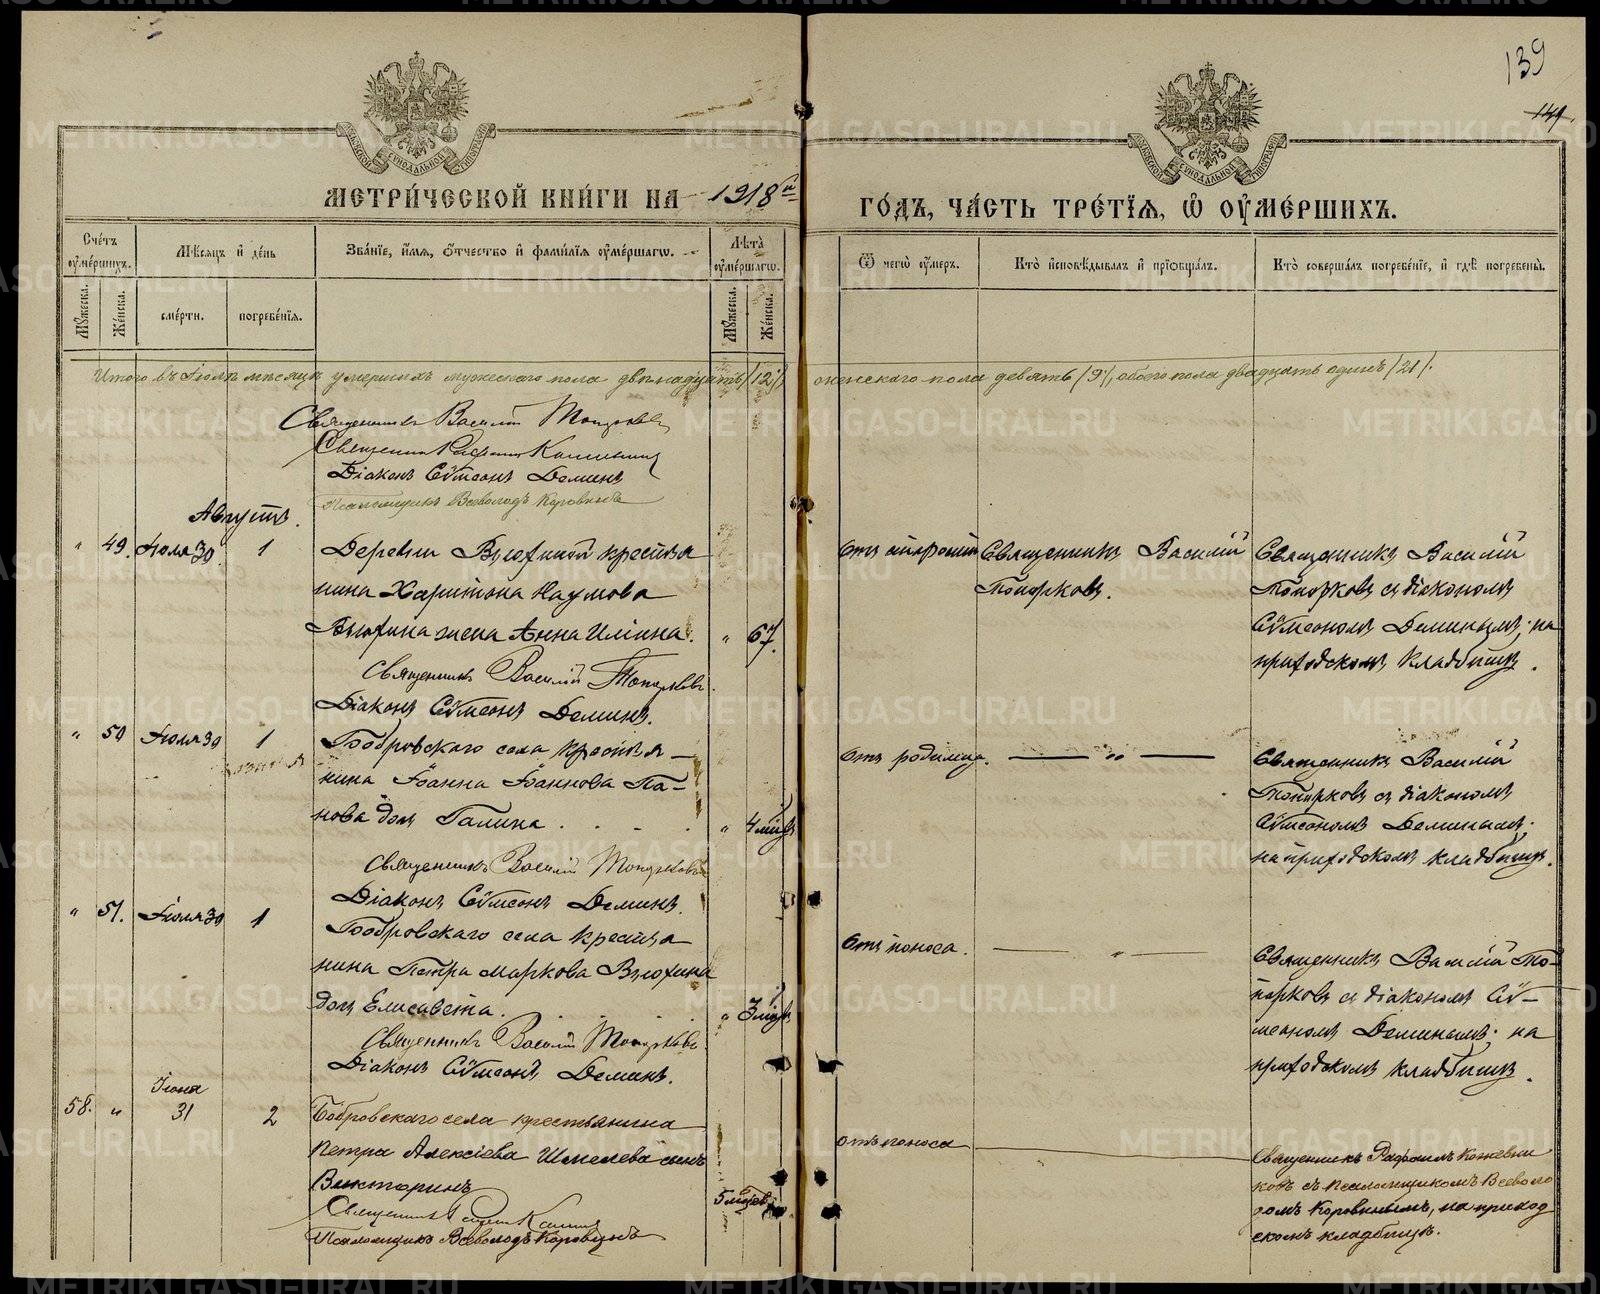 139
141.
МОСКОВСКОЙ СИНОДАЛЬНОЙ ТИПОГРАФІИ
МОСКОВСКОЙ СИНОДАЛЬНОЙ ТИПОГРАФІИ
МЕТРИ́ЧЕСКОЙ КНИ́ГИ НА 1918й
ГО́ДЪ, ЧА́СТЬ ТРЕ́ТІѦ, Ѽ ОУ҆МЕ́РШИХЪ.
Сче́тъ оу҆ме́ршихъ.
Мѣ́сѧцъ и҆ де́нь
Зва́нїе, и҆́мѧ, ѻ҆́тчество и҆ фами́лїѧ оу҆ме́ршагѡ.
Лѣ́та оу҆ме́ршагѡ.
Ѿ чегѡ̀ оу҆́меръ.
Кто̀ и҆сповѣ́дывалъ и҆ прїѡбща́лъ.
Кто̀ соверша́лъ погребе́нїе, и҆ гдѣ̀ погребены̀.
Мꙋ́жеска.
Же́нска.
сме́рти.
погребе́нїѧ.
Мꙋ́жеска.
Же́нска.
Итого въ Іюлѣ мѣсяцѣ умершихъ мужескаго пола двѣнадцать /12/, женскаго пола девять /9/, обоего пола двадцать одинъ /21/.
Священникъ Василій Топорковъ
Священникъ Рафаилъ
Діаконъ Сѵмеонъ Деминъ
Псаломщикъ Всеволодъ Коровинъ
Августъ.
" 49. Іюля 30. 1
Деревни Вьюхиной крестья
нина Харитона Наумова
Вьюхина жена Анна Иліина. " 67.
Отъ старости
Священникъ Василій
Топорковъ.
Священникъ Василій
Топорковъ съ діакономъ
Сѵмеономъ Деминымъ; на
приходскомъ кладбищѣ.
Священникъ Василій Топорковъ.
Діаконъ Сѵмеонъ Деминъ.
" 50 Іюля 30 1
Бобровскаго села крестья
нина Іоанна Іоаннова Па-
нова дочь Галина . . . . " 4 мѣс.
Отъ родимца. — " —
Священникъ Василій
Топорковъ съ діакономъ
Сѵмеономъ Деминымъ;
на приходскомъ кладбищѣ.
Священникъ Василій Топорковъ
Діаконъ Сѵмеонъ Деминъ.
" 51. Іюля 30 1
Бобровскаго села крестья
нина Петра Маркова Вьюхина
дочь Елисавета. . . . " 3 мѣс.
Отъ поноса. — " —
Священникъ Василій То-
порковъ съ діакономъ Сѵ-
меономъ Деминымъ; на
приходскомъ кладбищѣ.
Священникъ Василій Топорковъ.
Діаконъ Сѵмеонъ Деминъ.
58. " Іюля 31 2
Бобровскаго села крестьянина
Петра Алексіева Шмелева сынъ
Викторинъ 5 мѣсяцев
отъ поноса
Священникъ Рафаилъ Кожевни
ковъ съ псаломщикомъ Всеволо
домъ Коровинымъ, на приход
скомъ кладбищѣ.
Священникъ
Псаломщикъ Всеволодъ Коровинъ
METRIKI.GASO-URAL.RU